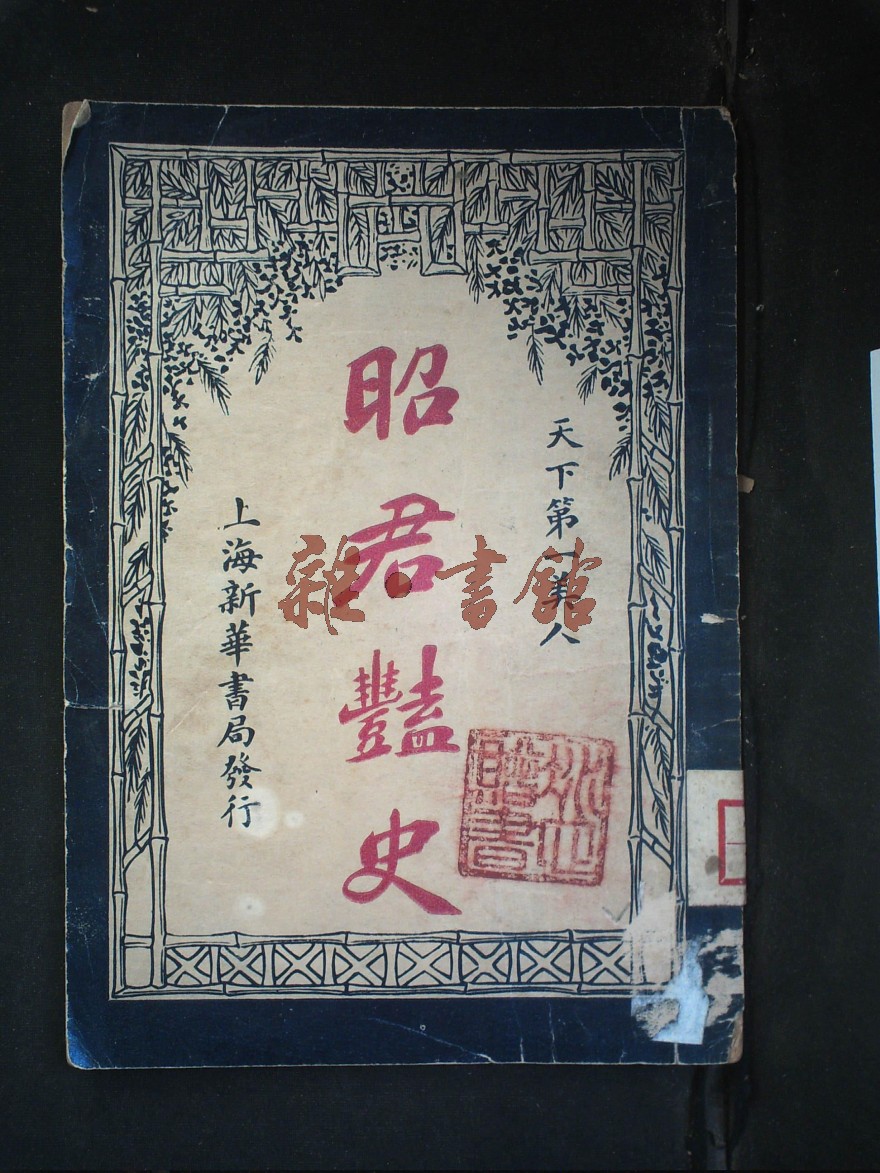 天下第一美人
昭君豔史
上海新華書局發行
雜·書館